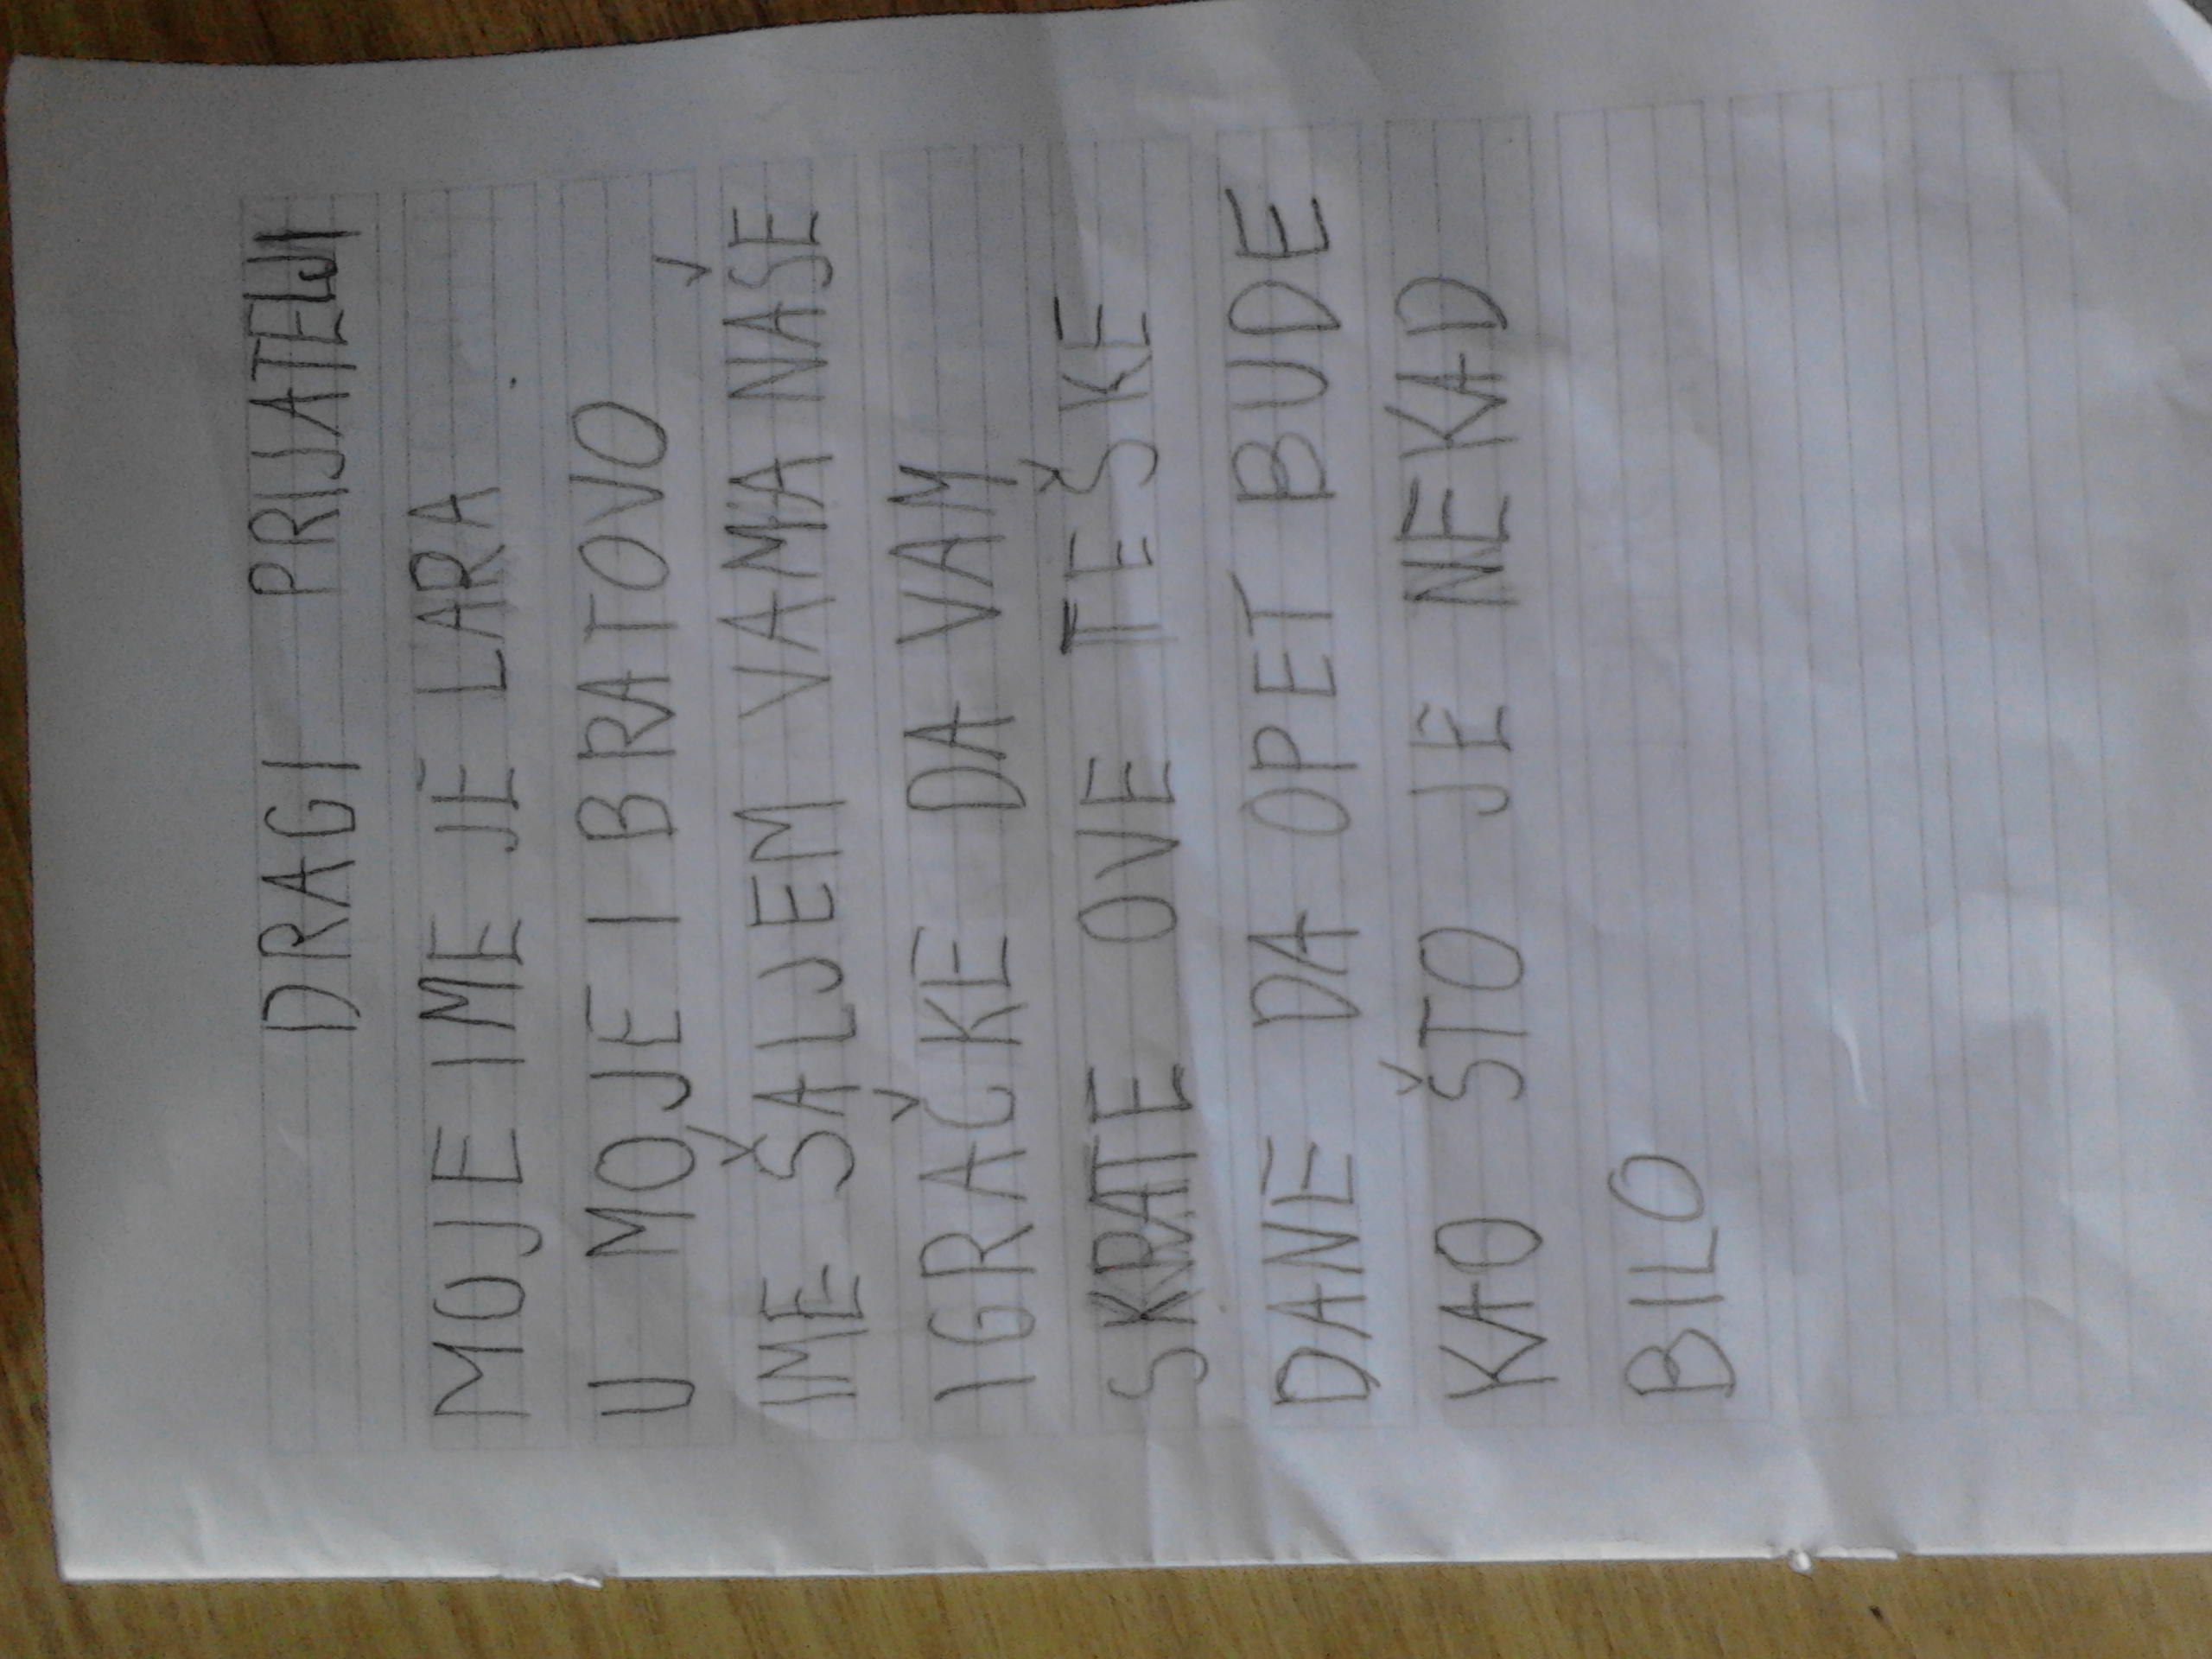 DRAGI PRIJATELJI
MOJE IME JE LARA
U MOJE I BRATOVO
IME ŠALJEM VAMA NAŠE
IGRAČKE DA VAM
SKRATE OVE TEŠKE
DANE DA OPET BUDE
KAO ŠTO JE NEKAD
BILO